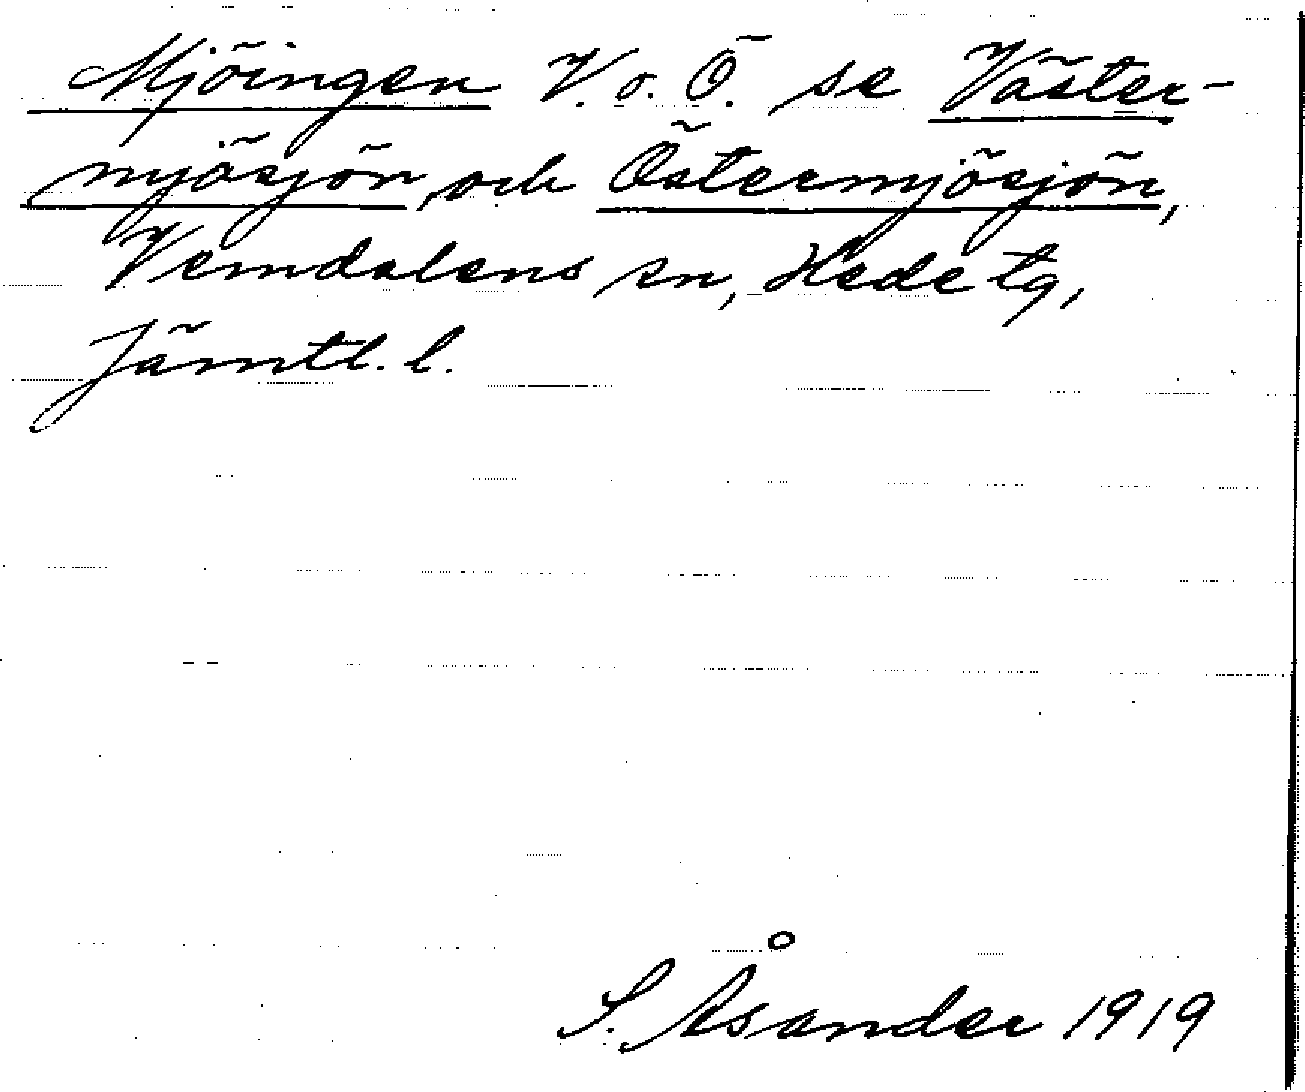 Mjöingen V. o. Ö. se Väster-
myösjön, och Östermyösjön,
Vemdalens sn, Hede tg,
Jämtl. l.
S. Åsander 1919